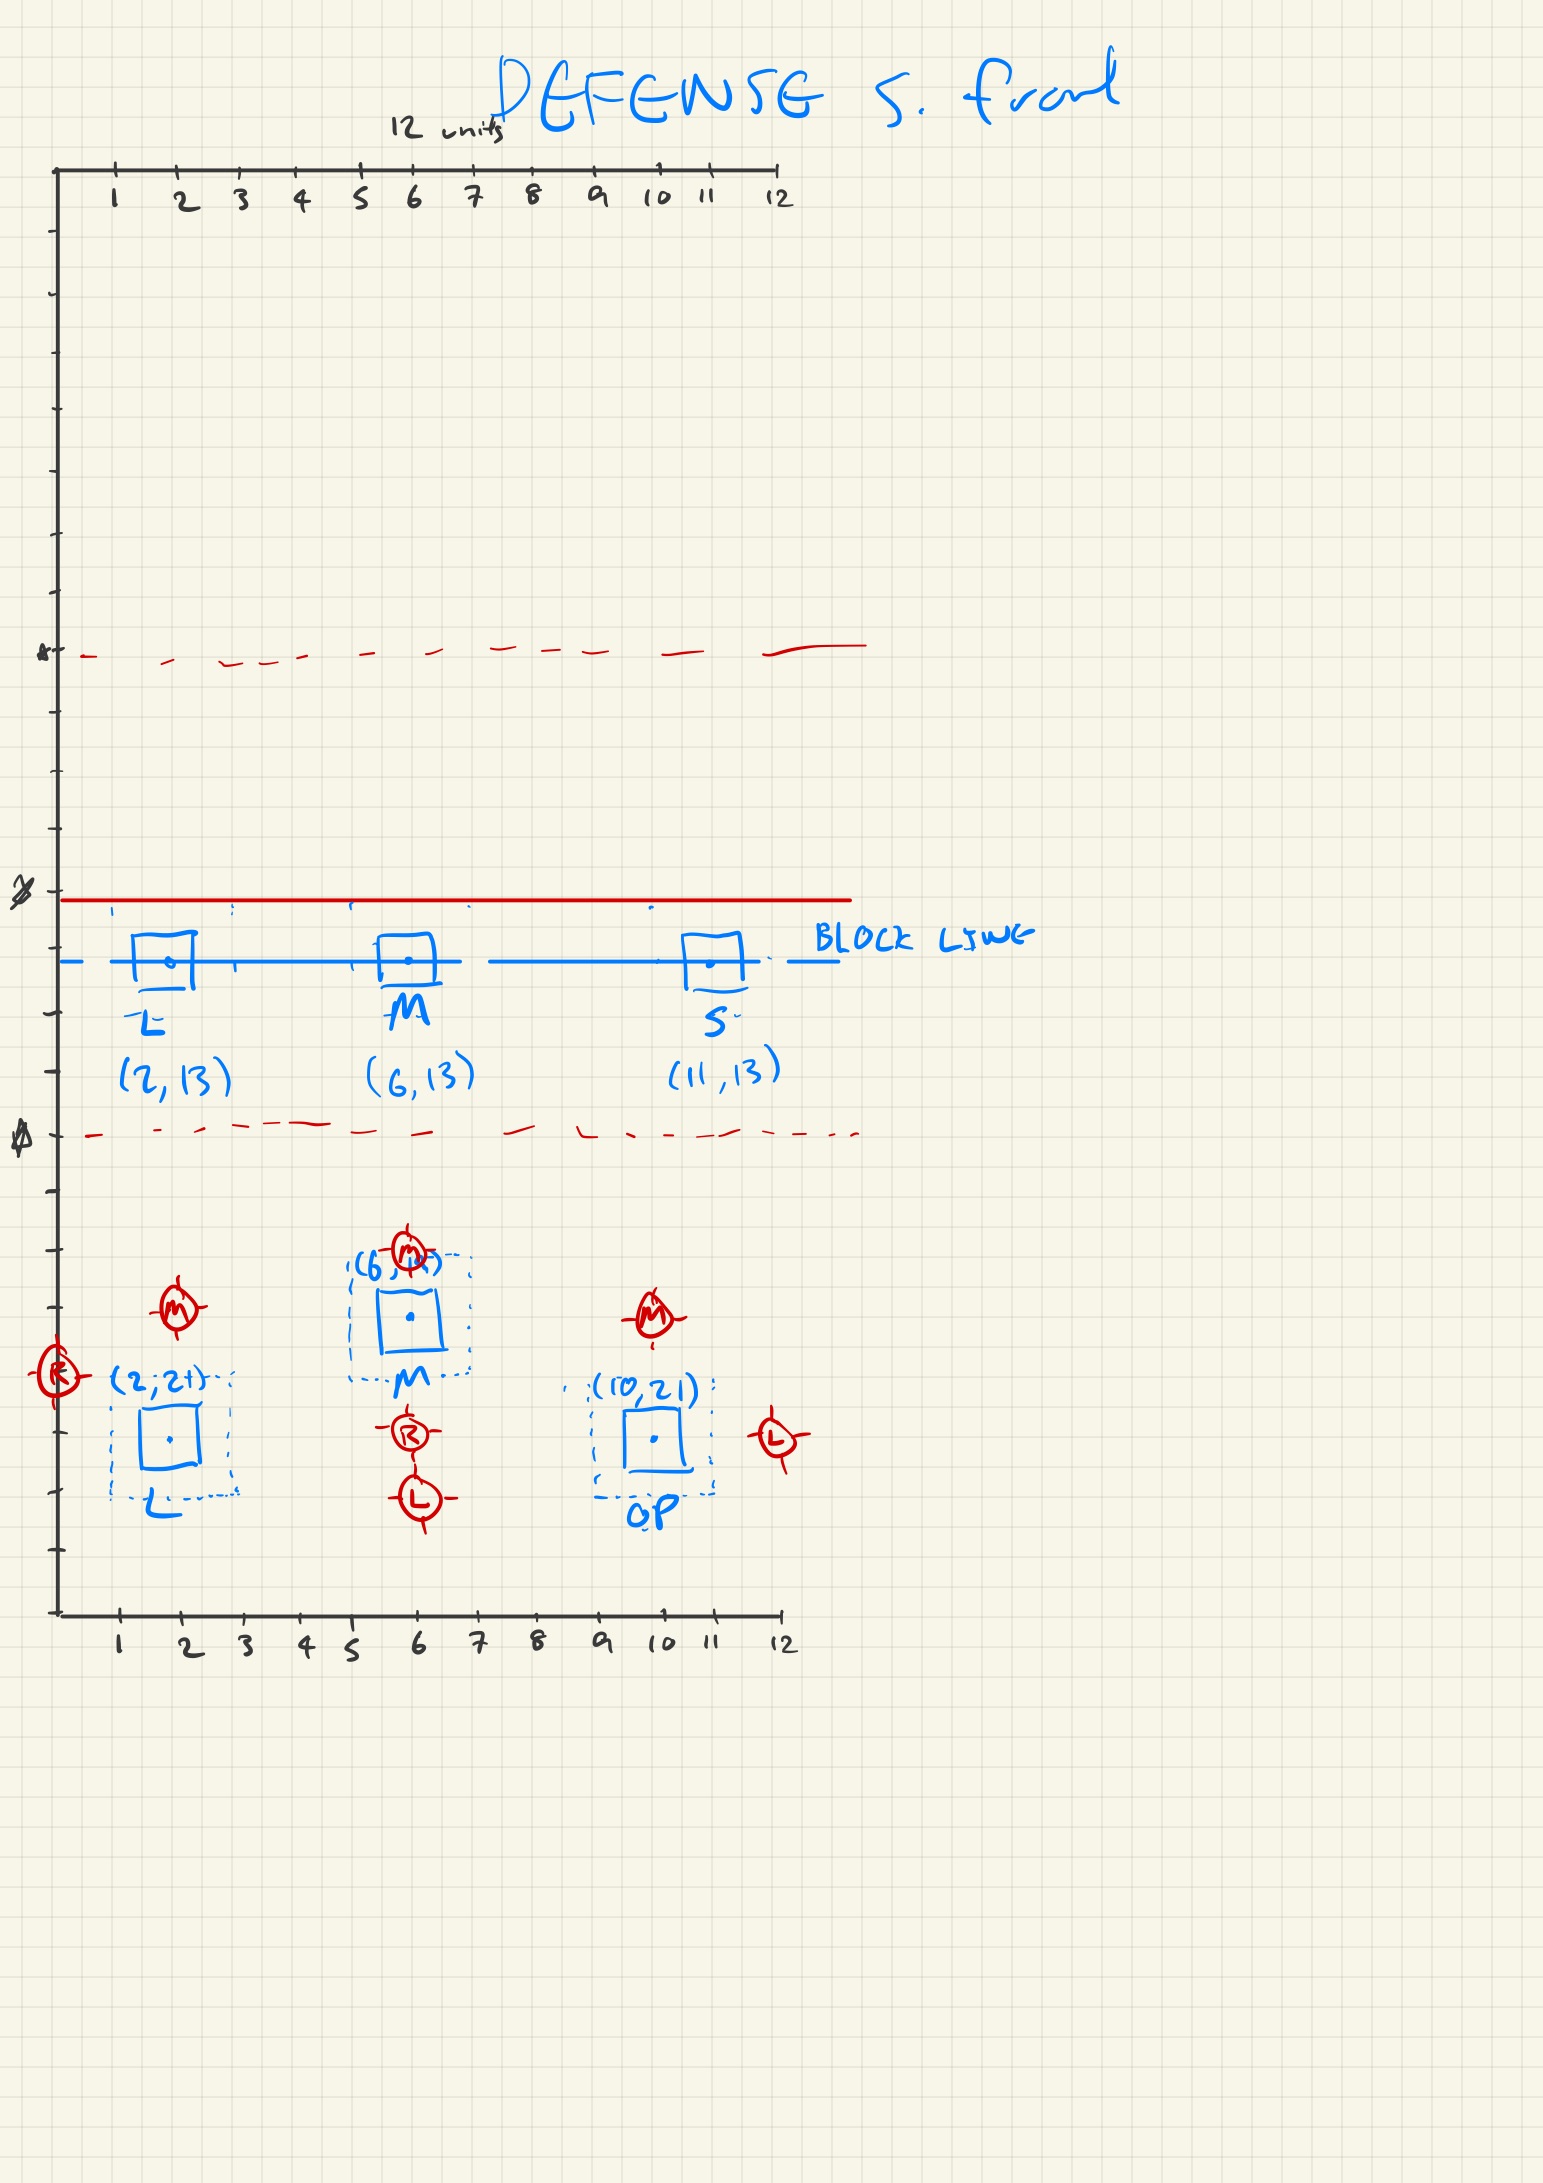 DEFENSE S. front
12 units
1 2 3 4 5 6 7 8 9 10 11 12
BLOCK LINE
L M S
(2,13) (6,13) (11,13)
M
(6,
M M
R (2,21) M (10,21)
R L
L
L OP
1 2 3 4 5 6 7 8 9 10 11 12